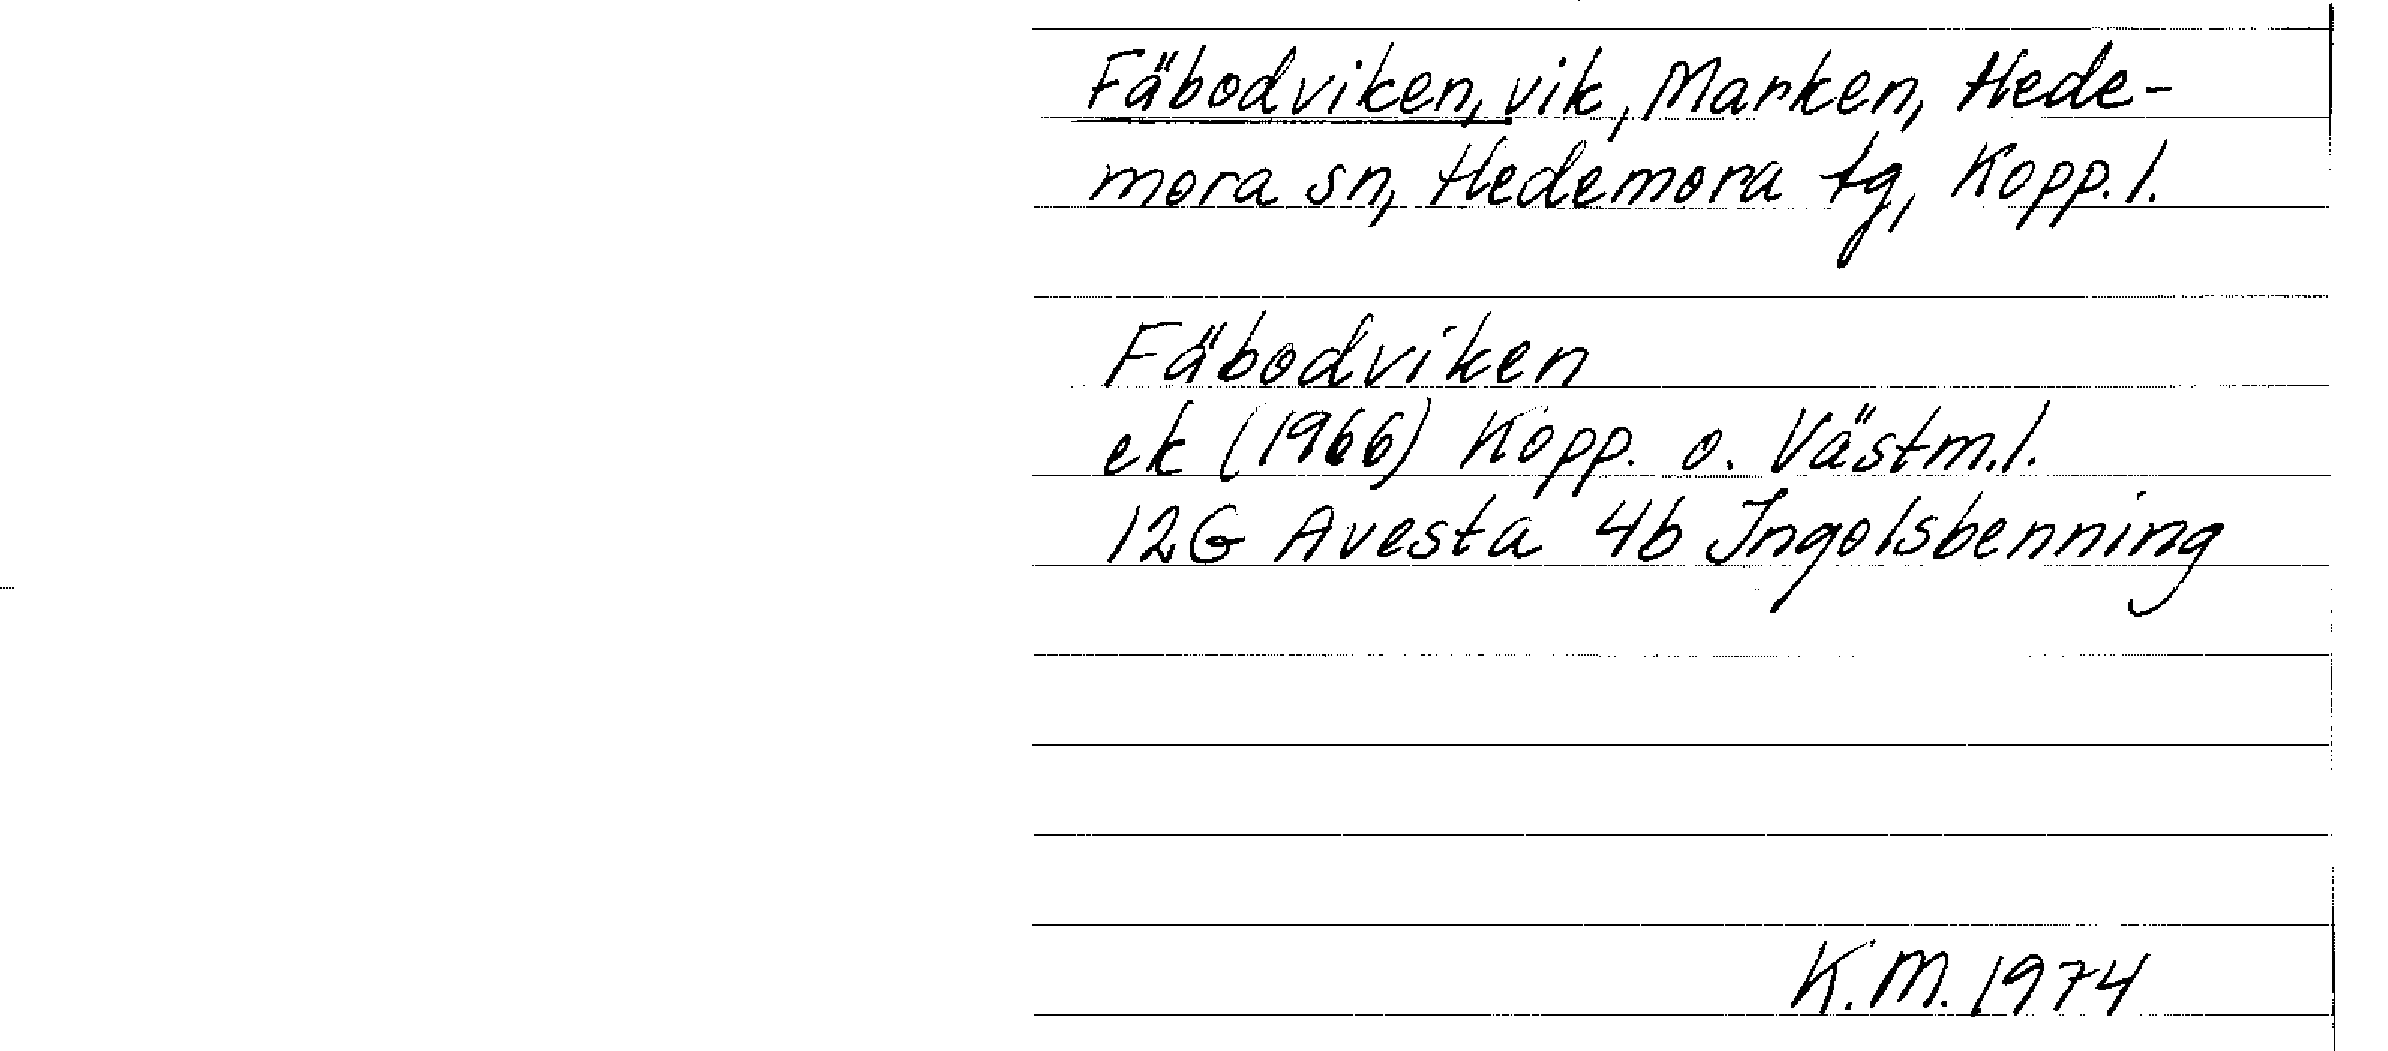 Fäbodviken, vik, Marken, Hede-
mora sn, Hedemora tg, Kopp. l.
Fäbodviken
ek (1966) Kopp. o. Västm. l.
12G Avesta 4b Ingolsbenning
K.M. 1974